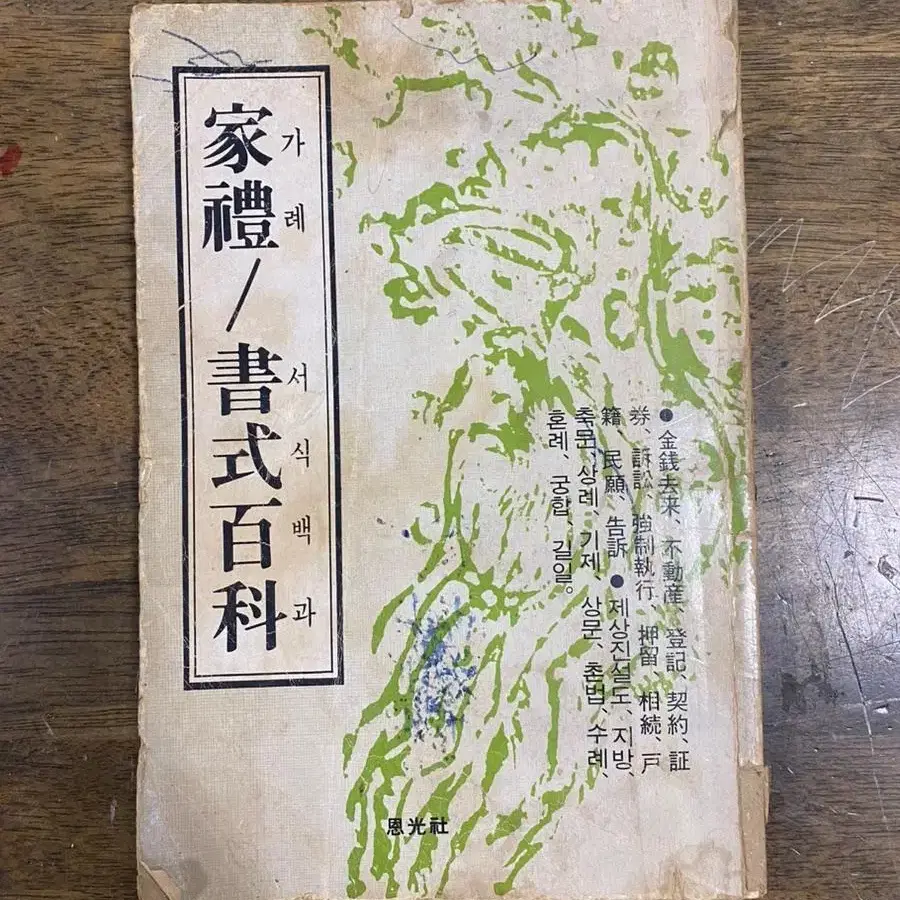 家禮/書式百科
가례 서식백과
●金銭去来、不動産、登記、契約、証
券、訴訟、強制執行、押留、相続、戸
籍、民願、告訴 ●제상진설도、지방、
축문、상례、기제、상문、촌법、수례、
혼례、궁합、길일。
恩光社